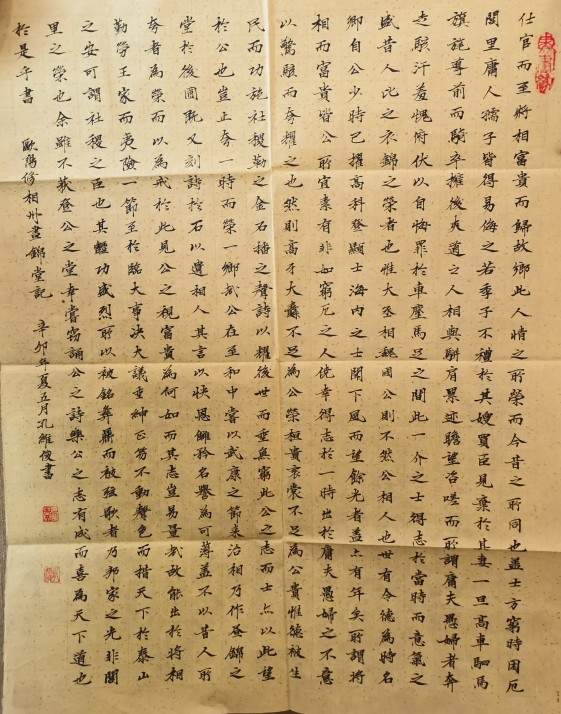 仕官而至將相富貴而歸故鄉此人情之所榮而今昔之所同也蓋士方窮時困厄
閭里庸人孺子皆得易侮之若季子不禮於其嫂買臣見棄於其妻一旦高車駟馬
旗旄導前而騎卒擁後夾道之人相與駢肩累迹瞻望咨嗟而所謂庸夫愚婦者奔
走駭汗羞愧俯伏以自悔罪於車塵馬足之間此一介之士得志於當時而意氣之
盛昔人比之衣錦之榮者也惟大丞相魏國公則不然公相人也世有令德為時名
卿自公少時已擢高科登顯士海內之士聞下風而望餘光者蓋亦有年矣所謂將
相而富貴皆公所宜素有非如窮厄之人僥幸得志於一時出於庸夫愚婦之不意
以驚駭而夸耀之也然則高牙大纛不足為公榮桓貴袞裳不足為公貴惟德被生
民而功施社稷勒之金石播之聲詩以耀後世而垂無窮此公之志而士亦以此望
於公也豈止夸一時而榮一鄉哉公在至和中嘗以武康之節來治相乃作晝錦之
堂於後圃既又刻詩於石以遺相人其言以快恩讎矜名譽為可薄蓋不以昔人所
夸者為榮而以為戒於此見公之視富貴為何如而其志豈易量哉故能出於將相
勤勞王家而夷險一節至於臨大事決大議垂紳正笏不動聲色而措天下於泰山
之安可謂社稷之臣也其豐功盛烈所以被銘彝鼎而被弦歌者乃邦家之光非閭
里之榮也余雖不獲登公之堂幸嘗竊誦公之詩樂公之志有成而喜為天下道也
於是乎書 歐陽修相州晝錦堂記 辛卯年夏五月孔維俊書